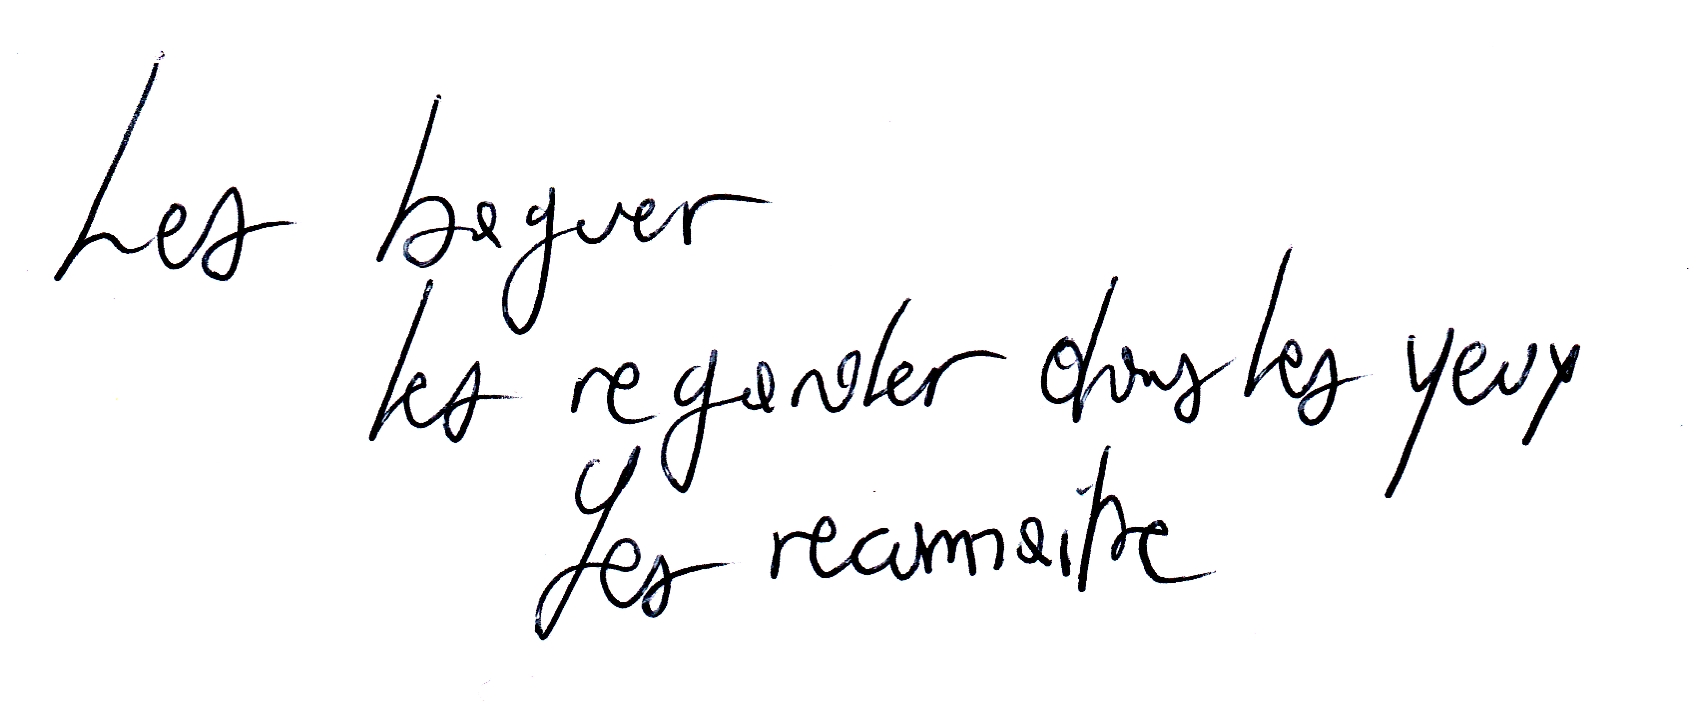 Les baguer
les regarder dans les yeux
Les reconnaitre